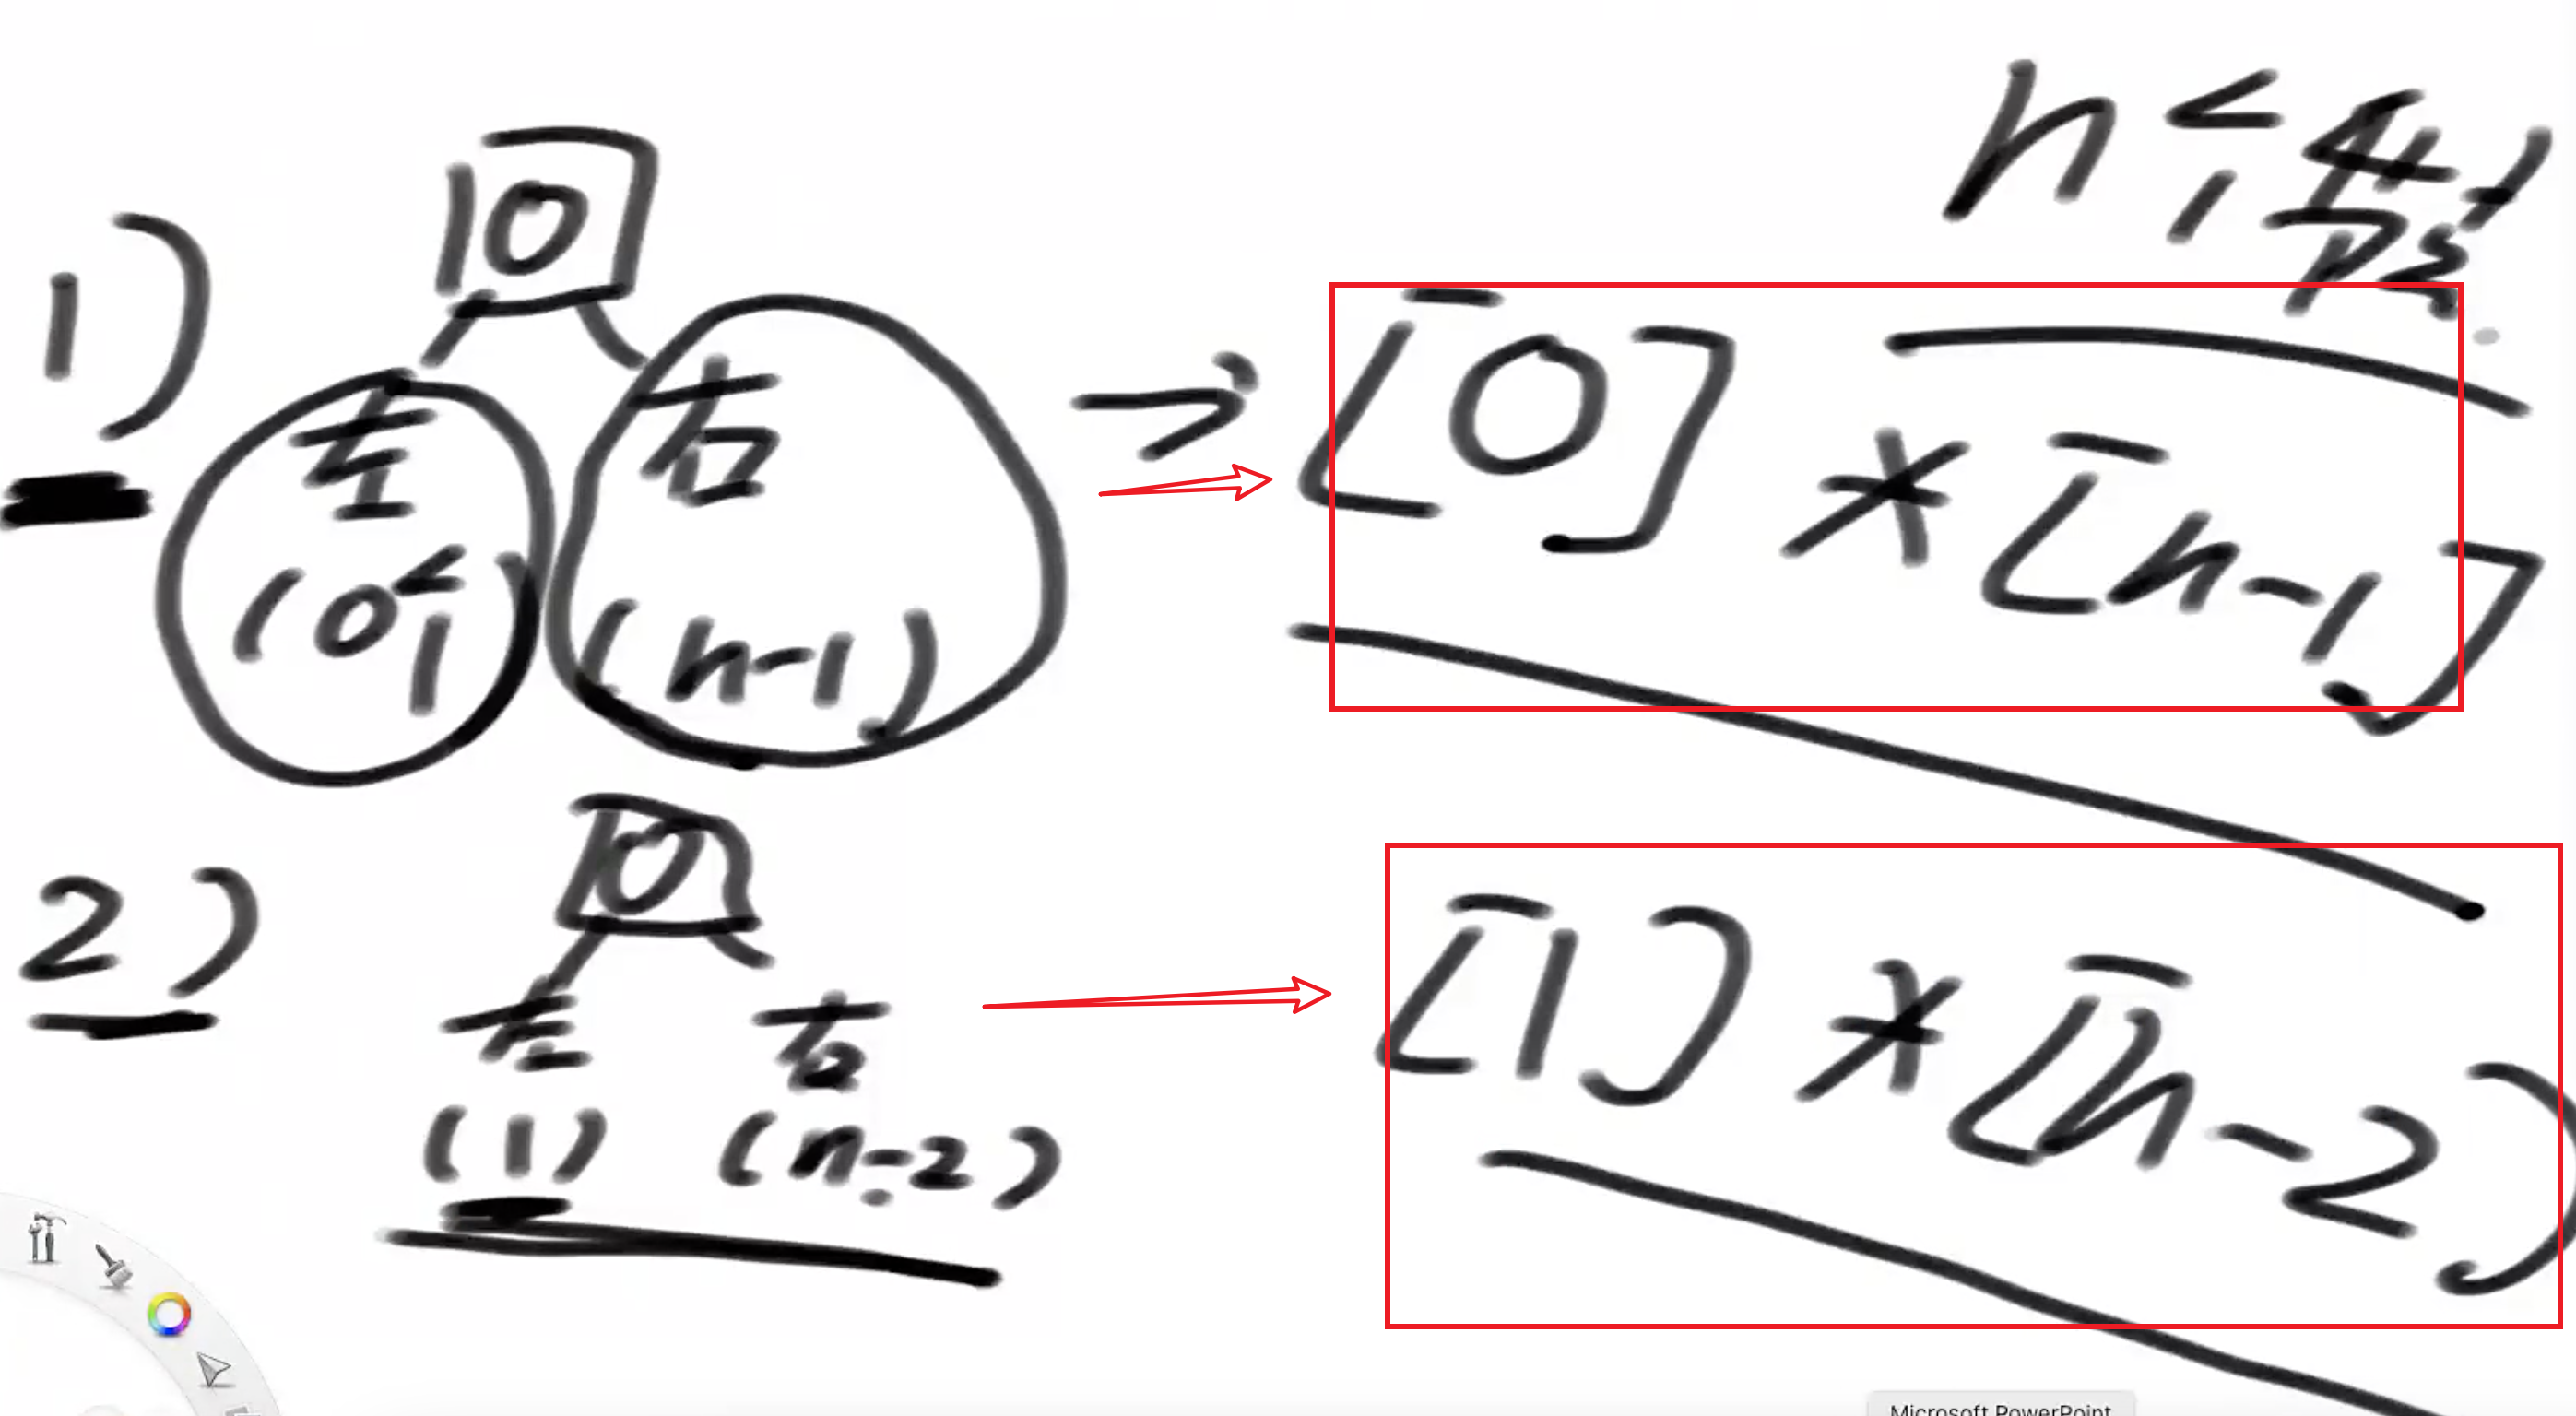 n个节点
1)
回
左 右
(0个) (n-1)
→ [0] * [n-1]
2)
回
左 右
(1) (n-2)
[1] * [n-2]
Microsoft PowerPoint